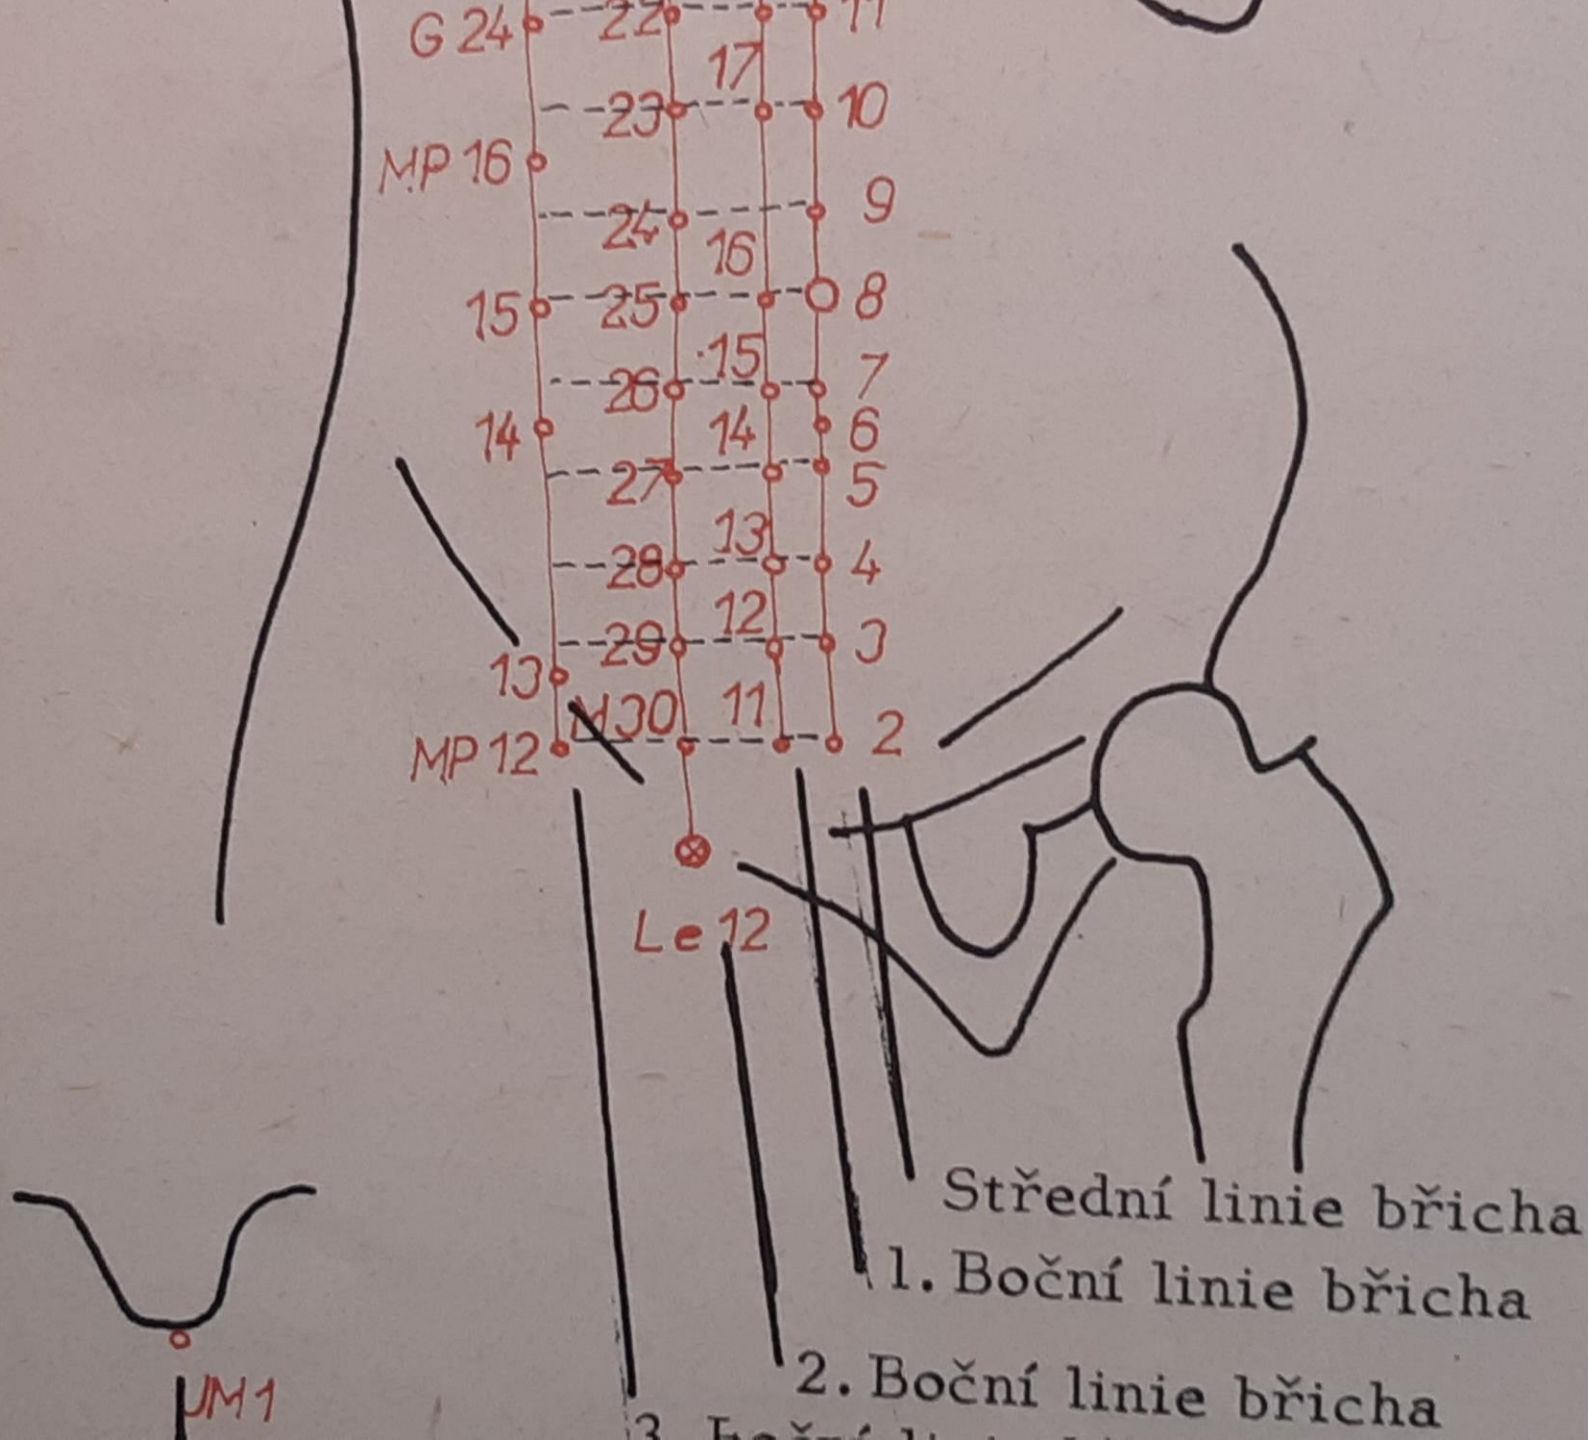 G 24 22 11
17
23 10
MP 16
24 9
16
15 25 8
15
26 7
14 14 6
27 5
13
28 4
12
29 3
13
M30 11
MP 12 2
Le 12
Střední linie břicha
1. Boční linie břicha
2. Boční linie břicha
JM1
3.